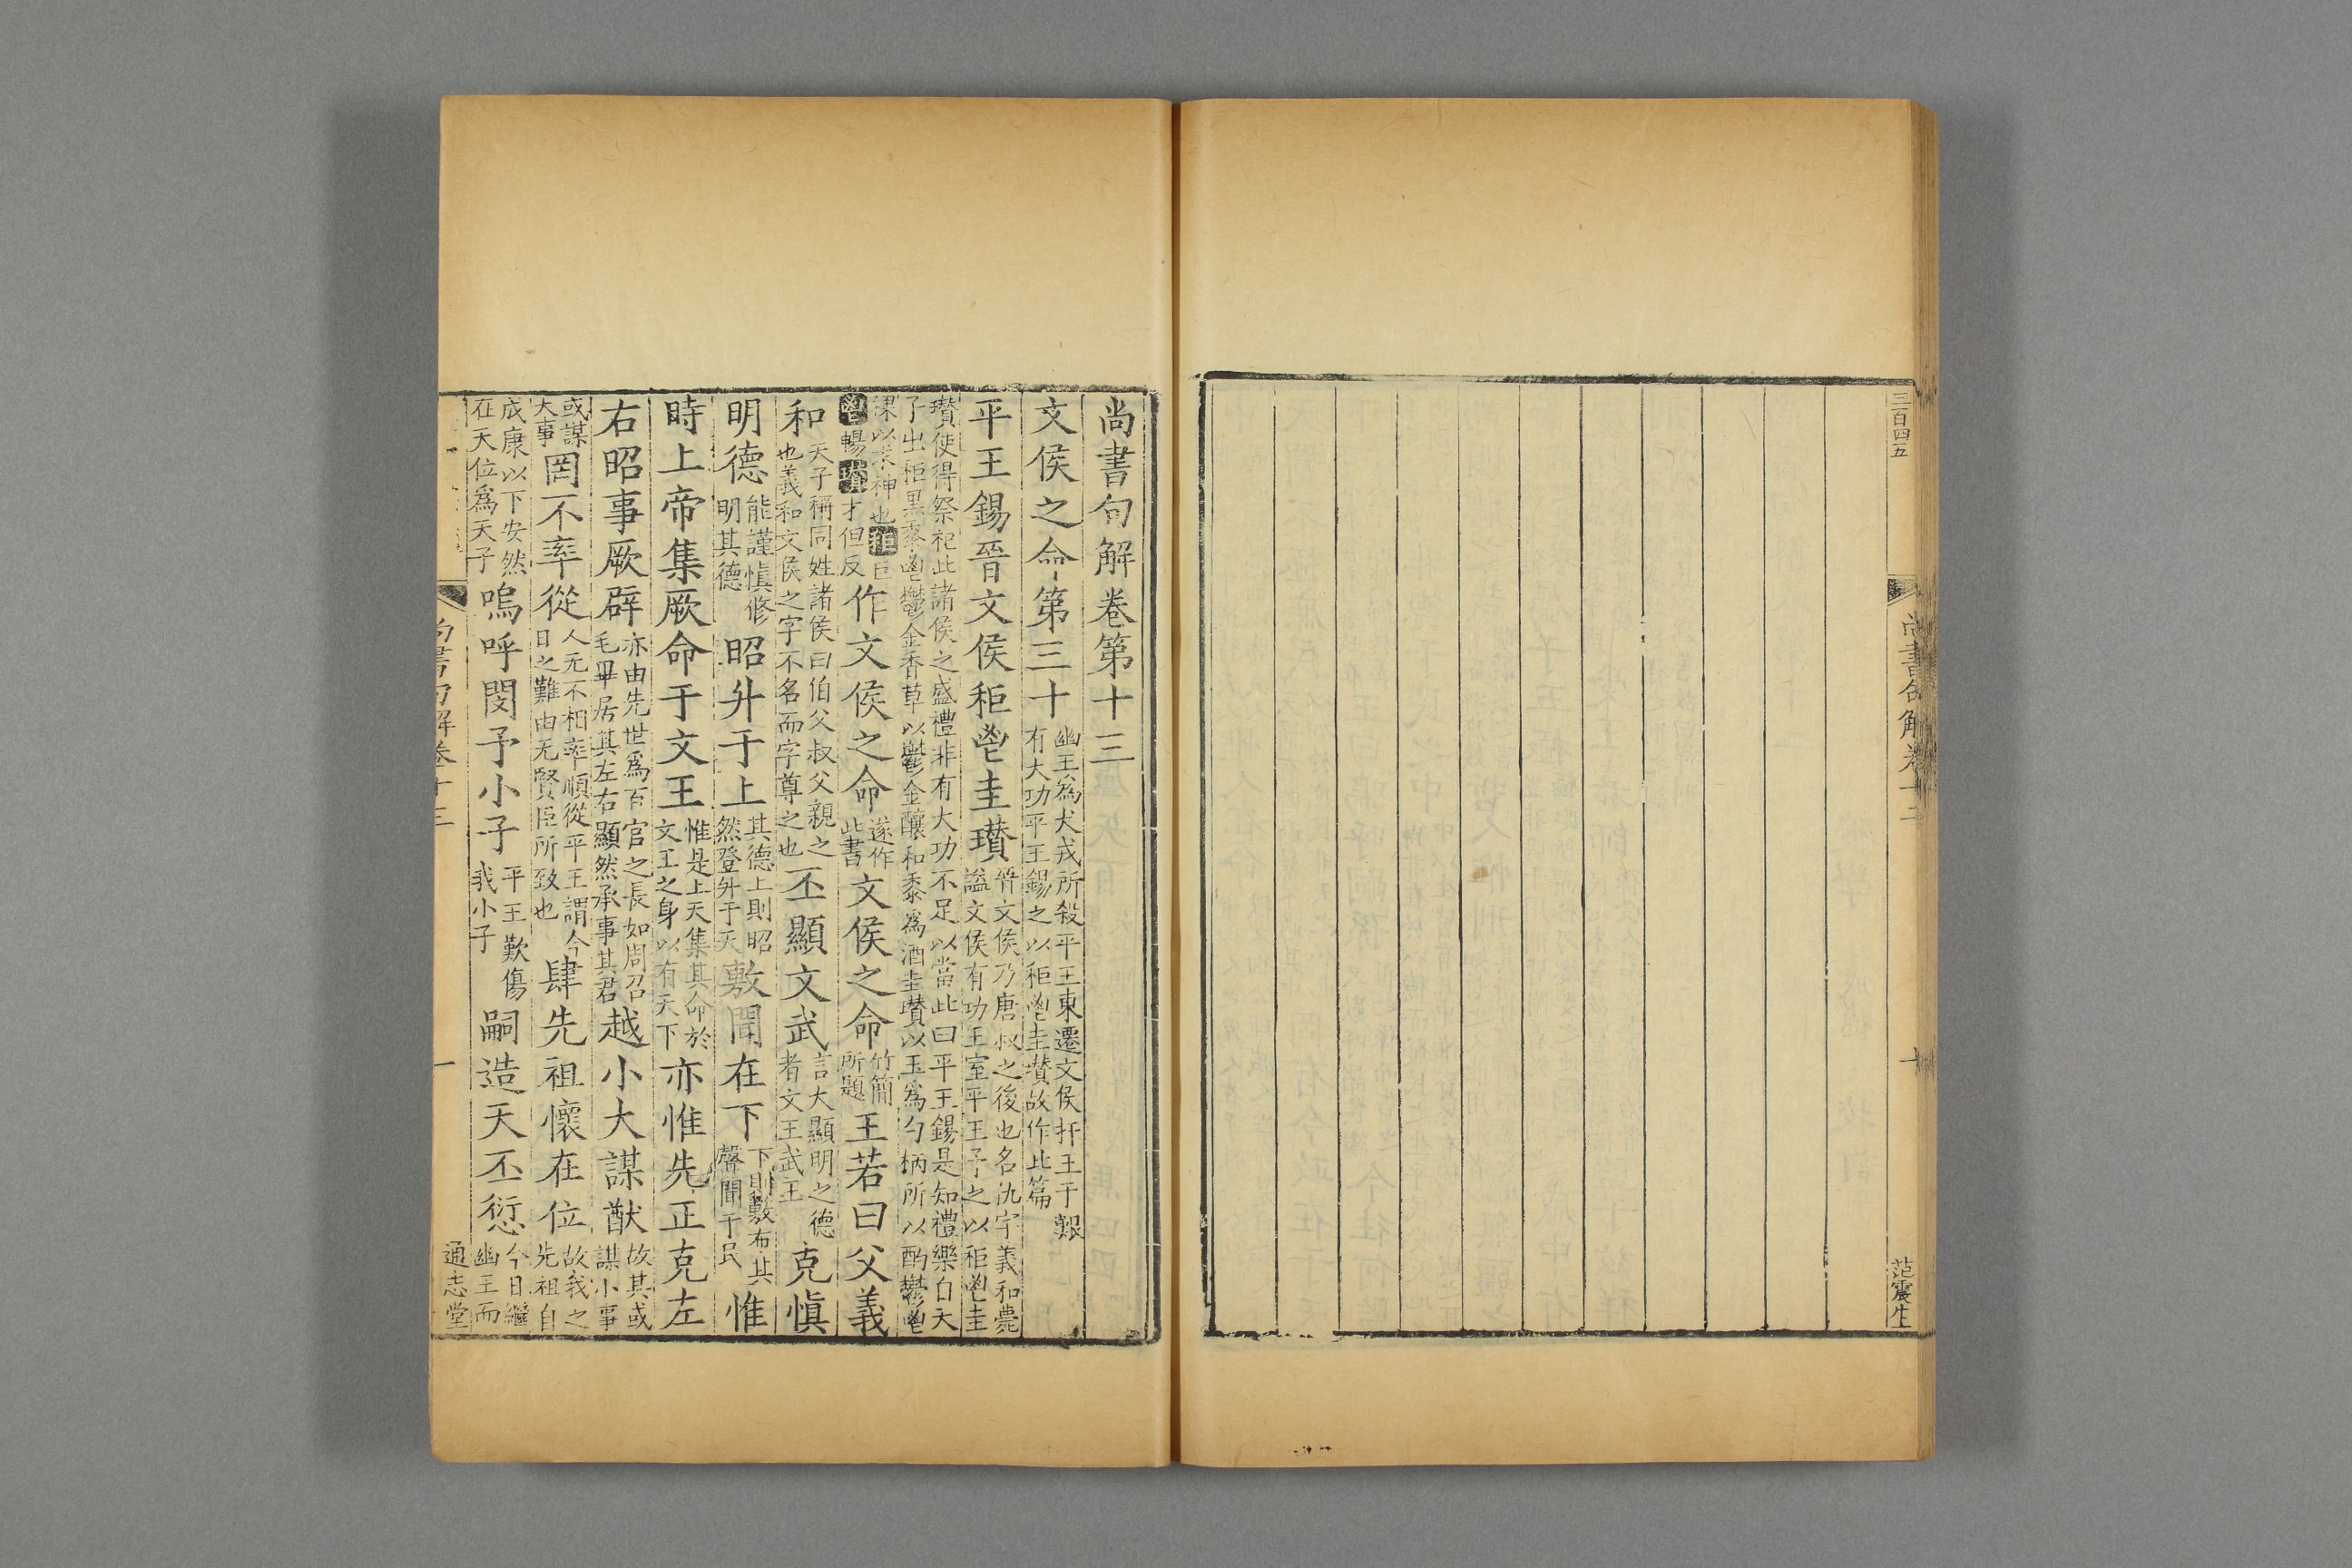 三百四五
尚書句解卷十二
十
范震生
尚書句解卷第十三
文侯之命第三十 幽王爲犬戎所殺平王東遷文侯扞王于艱有大功平王錫之以秬鬯圭瓚故作此篇
平王錫晉文侯秬鬯圭瓚 晉文侯乃唐叔之後也名仇字義和薨謚文侯有功王室平王予之以秬鬯圭
瓚使得祭祀此諸侯之盛禮非有大功不足以當此曰平王錫是知禮樂自天子出秬黑黍鬯鬱金香草以鬱金釀和黍爲酒圭瓚以玉爲勺柄所以酌鬱鬯
深以求神也秬巨鬯暢瓚才但反 作文侯之命 遂作此書 文侯之命 竹簡所題 王若曰父義
和 天子稱同姓諸侯曰伯父叔父親之也義和文侯之字不名而字尊之也 丕顯文武 言大顯明之德者文王武王 克慎
明德 能謹慎修明其德 昭升于上 其德上則昭然登升于天 敷聞在下 下則敷布其聲聞于民 惟
時上帝集厥命于文王 惟是上天集其命於文王之身以有天下 亦惟先正克左
右昭事厥辟 亦由先世爲百官之長如周召毛畢居其左右顯然承事其君 越小大謀猷 故其或謀小事
或謀大事 罔不率從 人无不相率順從平王謂今日之難由无賢臣所致也 肆先祖懷在位 故我之先祖自
成康以下安然在天位爲天子 嗚呼閔予小子 平王歎傷我小子 嗣造天丕愆 今日繼幽王而
尚書句解卷十三
一
通志堂